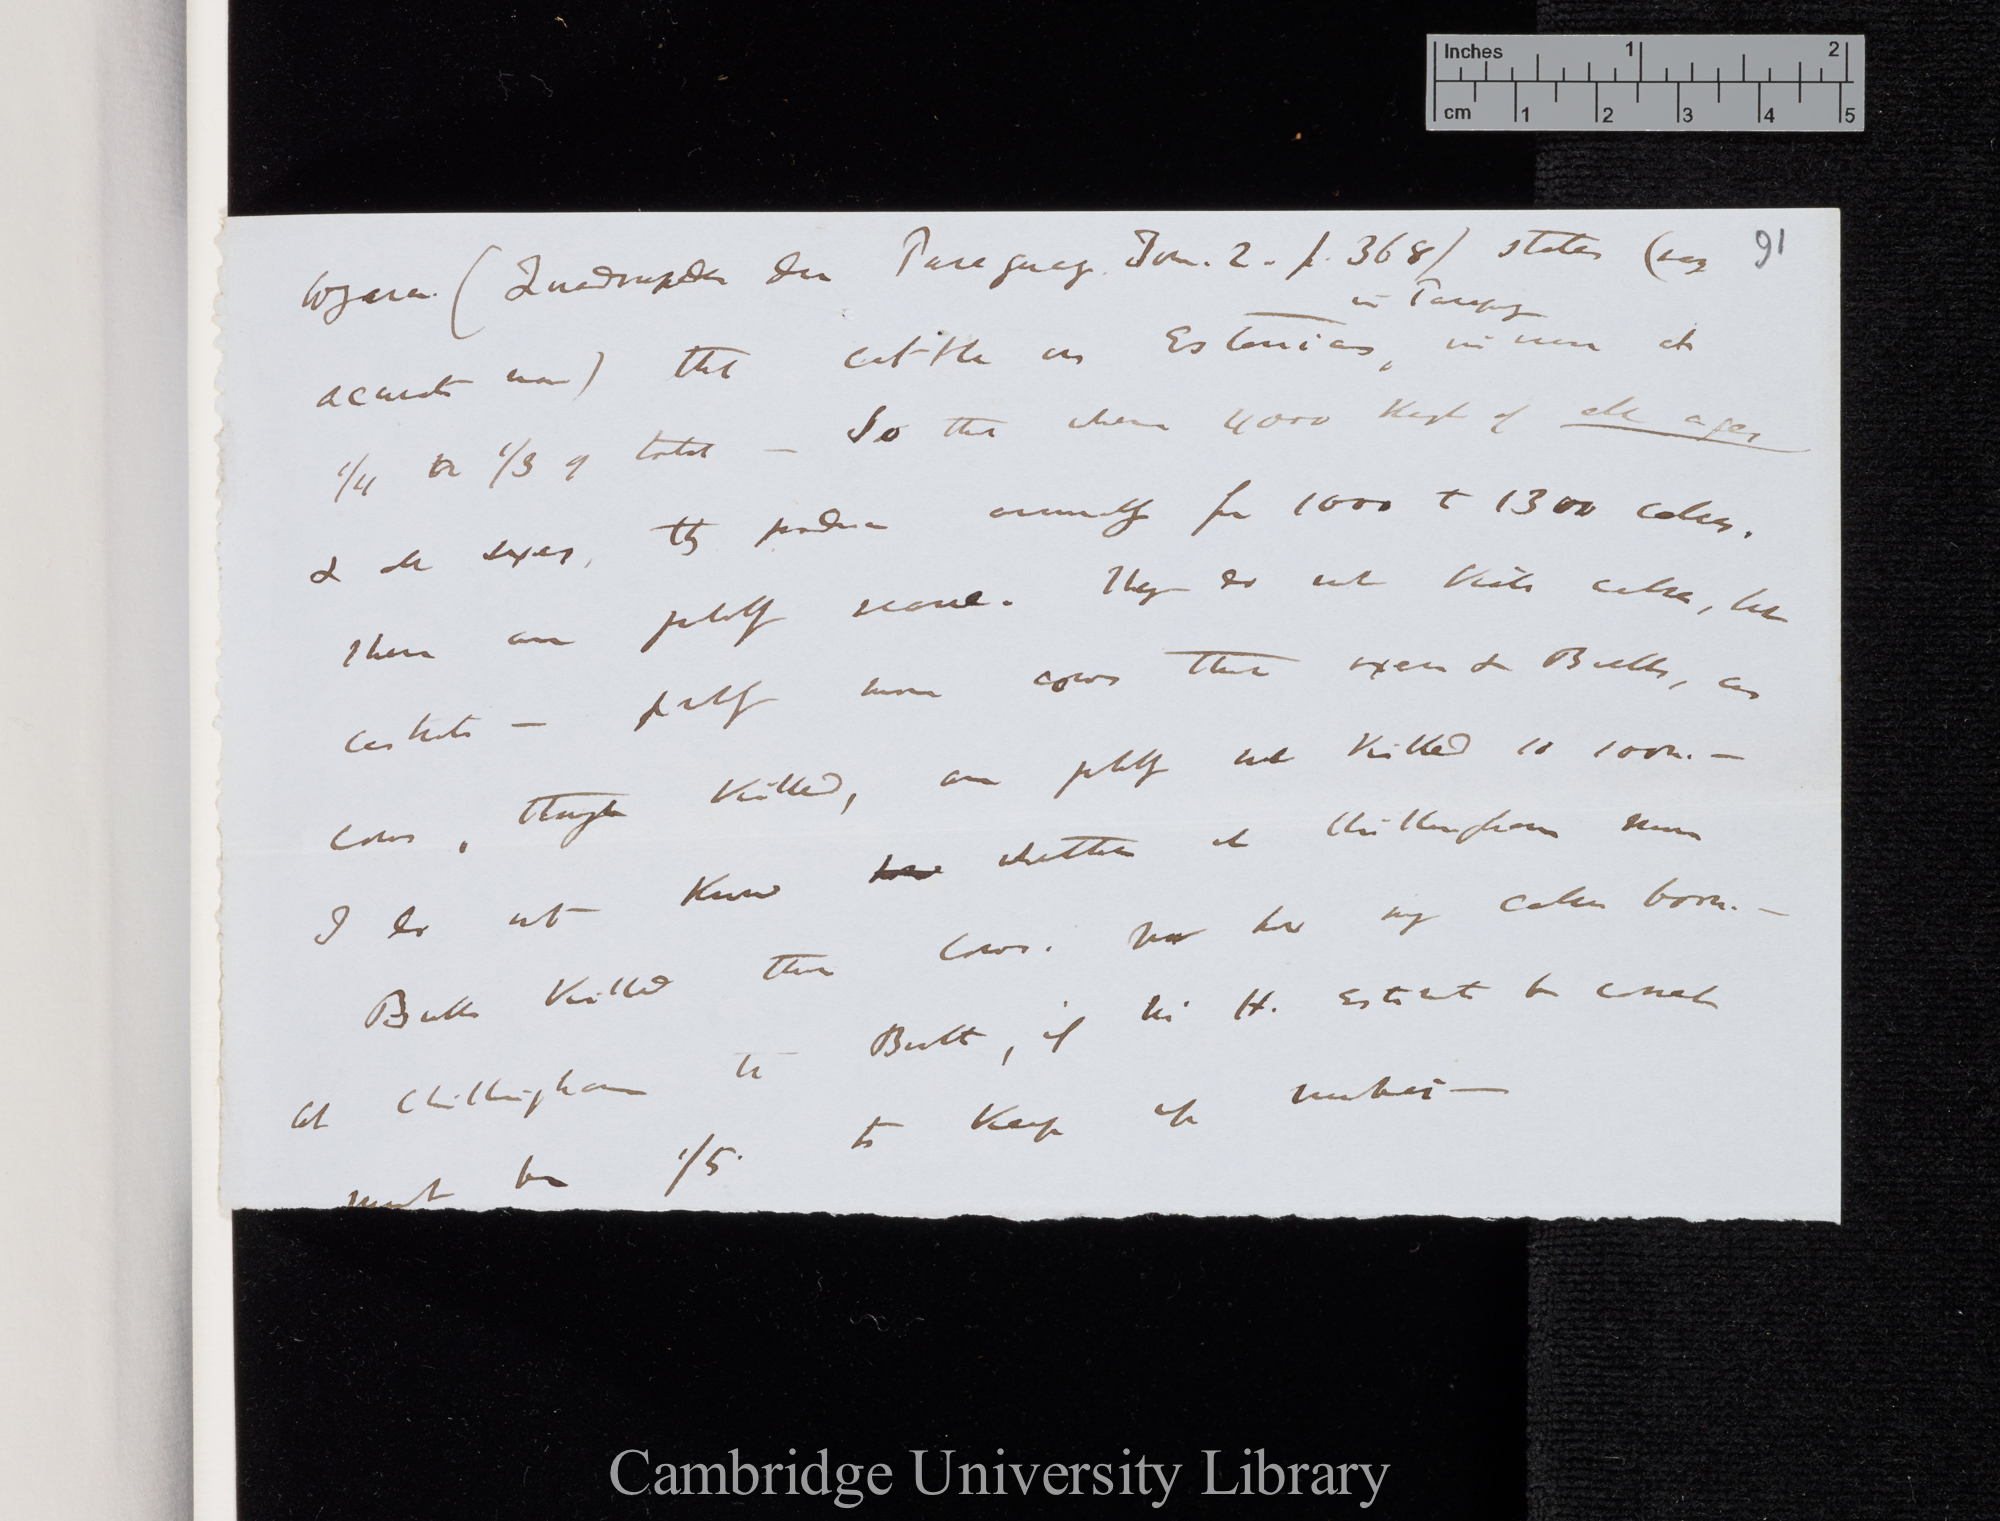 Inches 1 2
cm 1 2 3 4 5
91
Azara (Quadrupeds du Paraguay. Tom. 2. p. 368) states (very
in Paraguay
accurate man) that cattle on Estancias, increase at
1/4 or 1/3 of total — So that where 4000 kept of all ages
& all sexes, they produce annually from 1000 to 1300 calves.
There are probably more. They do not kill calves, but
castrate — probably more cows than oxen & Bulls, as
cows, though killed, are probably not killed so soon. —
I do not know how whether at Chillingham more
Bulls killed than cows. nor how many calves born. —
at Chillingham the Birth, if Mr H. estimate be correct
must be 1/5. to keep up number —
Cambridge University Library